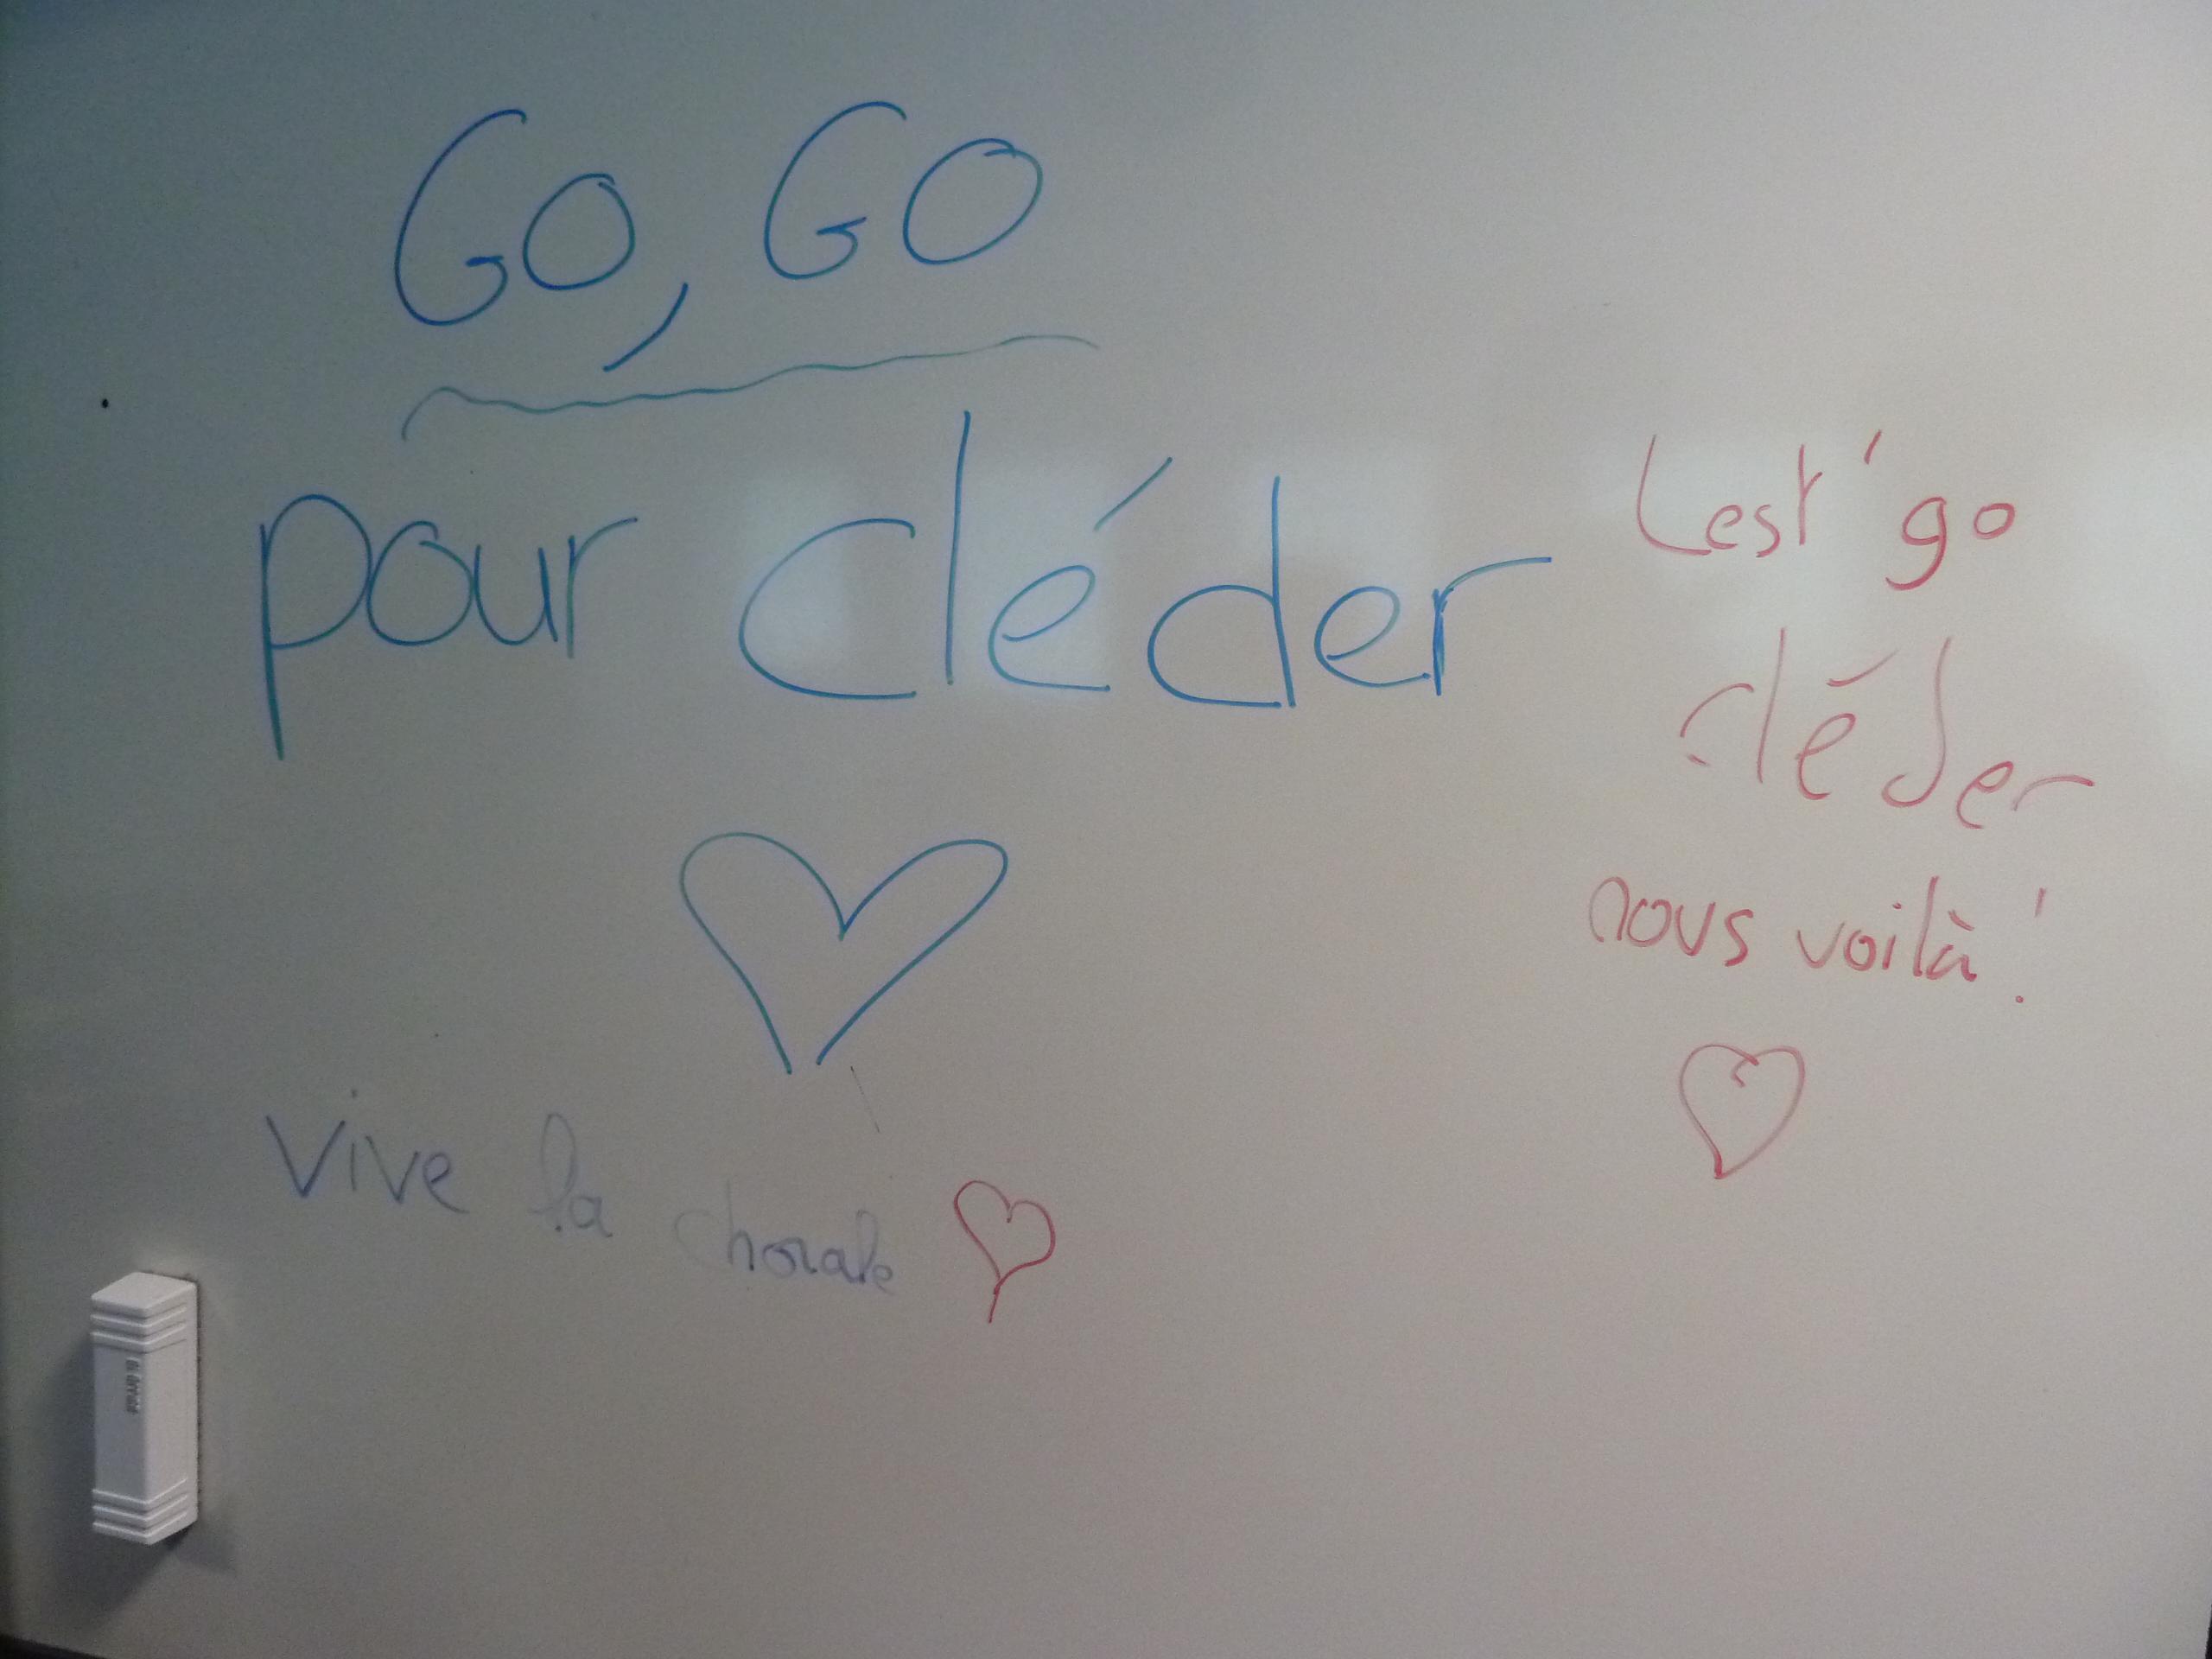 GO, GO
pour cléder
Lest'go
cléder
nous voilà!
Vive la chorale